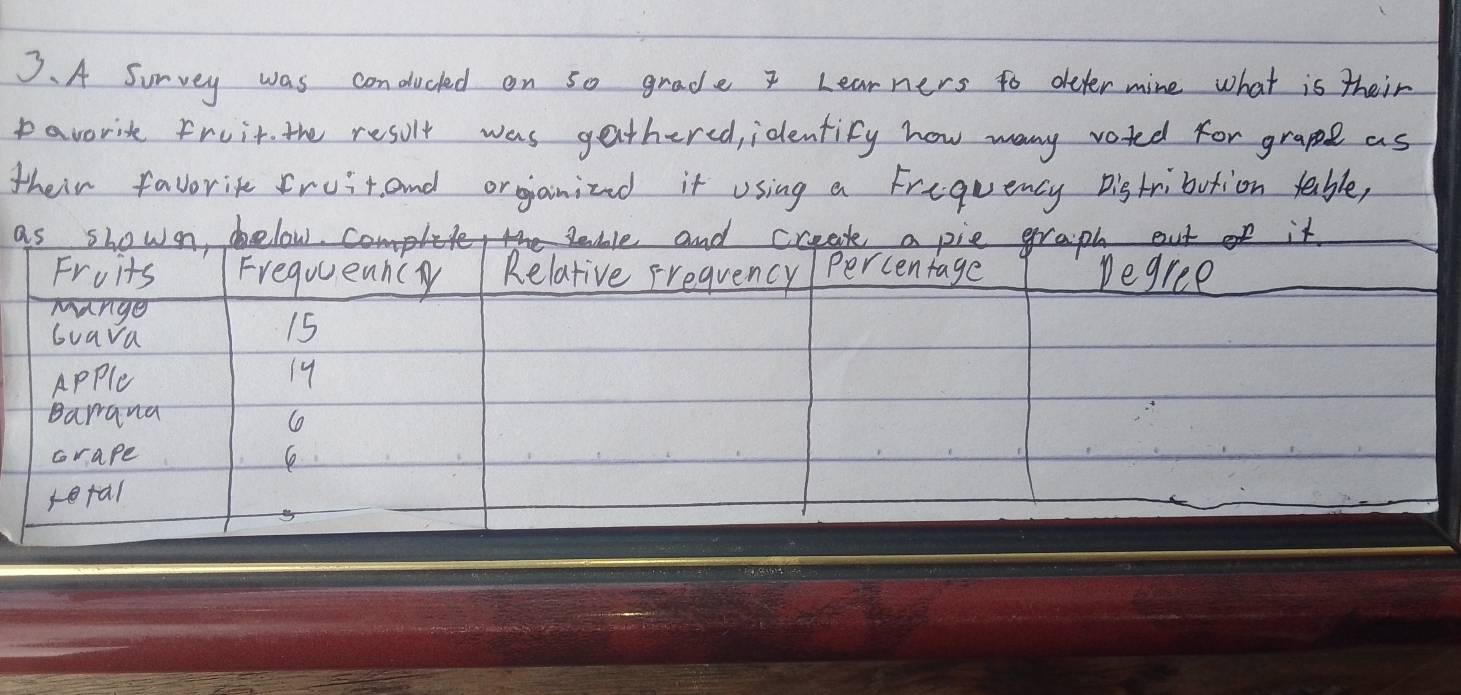 3. A Survey was conducted on 50 grade 7 Learners to determine what is their
Favorite Fruit. the result was geathered, identify how many voted for grape as
their favorite fruit. and orgianized it using a Frequency Distribution table,
as shown, below. Complete, the table and create a pie graph out of it.
Fruits Frequueancy Relative Frequency Percentage Degree
Mango
Guava 15
APPle 14
Banana 6
Grape 6
total